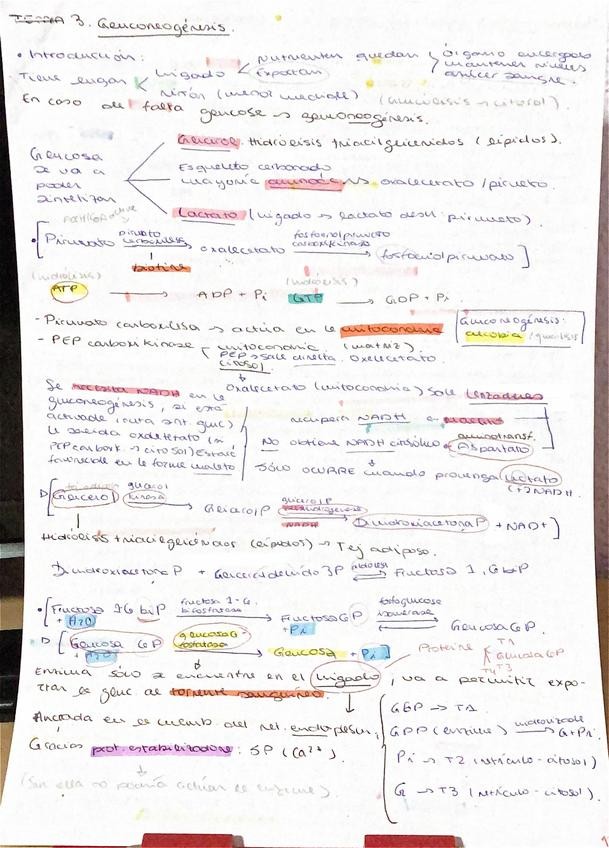 3. Gluconeogénesis.
• Introducción:
Tiene lugar
Hígado
Nutrientes quedan
Exportan
órgano encargado
mantener niveles
azúcar sangre.
riñón (menor medida) (Gluconeogénesis → citosol)
En caso de falta glucosa → gluconeogénesis.
Glucosa
se va a
poder
sintetizar
Glicerol. Hidrólisis triacilglicéridos (lípidos).
Esqueleto carbonado
mayoría aminoác → oxalacetato / piruvato.
Lactato (hígado → lactato desh. piruvato).
• [Piruvato piruvato carboxilasa oxalacetato fosfoenolpiruvato carboxikinasa fosfoenolpiruvato]
biotina
(hidrólisis) (hidrólisis)
ATP → ADP + Pi GTP → GDP + Pi.
- Piruvato carboxilasa → actúa en la mitocondria
- PEP carboxikinasa mitocondria (matriz).
PEP → sale directa. Oxalacetato
(citosol)
Gluconeogénesis:
Oxalacetato (mitocondria) sale lanzaderas
Se necesita NADH en la
gluconeogénesis, si está
activada (ruta sint. gluc)
la salida oxalacetato (a
PEP carbox. → citosol) estará
favorecida en la forme malato
recupera NADH malato
aminotransf.
No obtiene NADH citosólico Aspartato
Sólo ocurre cuando provenga lactato
(+2 NADH.
D [Glicerol glicerol kinasa Glicerol P glicerol P deshidrogenasa NADH Dihidroxiacetona P + NAD+]
Hidrólisis triacilglicéridos (lípidos) → Tej adiposo.
Dihidroxiacetona P + Gliceraldehído 3P aldolasa Fructosa 1,6 biP
• [Fructosa 1-6 biP + H2O fructosa 1-6-bisfosfatasa Fructosa 6P + Pi fosfoglucosa isomerasa Glucosa 6P
D [Glucosa 6P + H2O glucosa 6-fosfatasa Glucosa + Pi]
Proteína T1
Glucosa 6P
T4 T3
Enzima sólo se encuentra en el hígado, va a permitir expo-
rtar la gluc. al torrente sanguíneo.
Anclada en la memb. del ret. endoplasm.
Gracias prot. estabilizadora: SP (Ca2+).
(Sin ella no podría actuar la enzima).
G6P → T1.
G6P (enzima) hidroliza G + Pi.
Pi → T2 (retículo-citosol)
G → T3 (retículo-citosol).